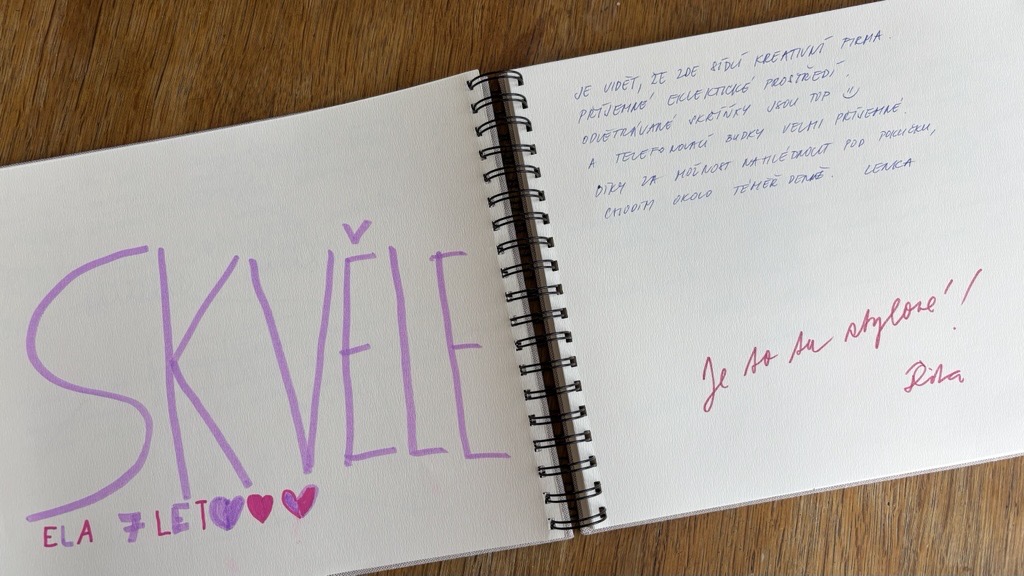 SKVĚLE
ELA 7 LET
JE VIDĚT, ŽE ZDE SÍDLÍ KREATIVNÍ FIRMA.
PŘÍJEMNÉ EKLEKTICKÉ PROSTŘEDÍ.
ODVĚTRÁVANÉ SKŘÍŇKY JSOU TOP
A TELEFONOVACÍ BUDKY VELMI PŘÍJEMNÉ.
DÍKY ZA MOŽNOST NAHLÉDNOUT POD POKLIČKU,
CHODÍM OKOLO TÉMĚŘ DENNĚ. LENKA
Je to tu stylové!